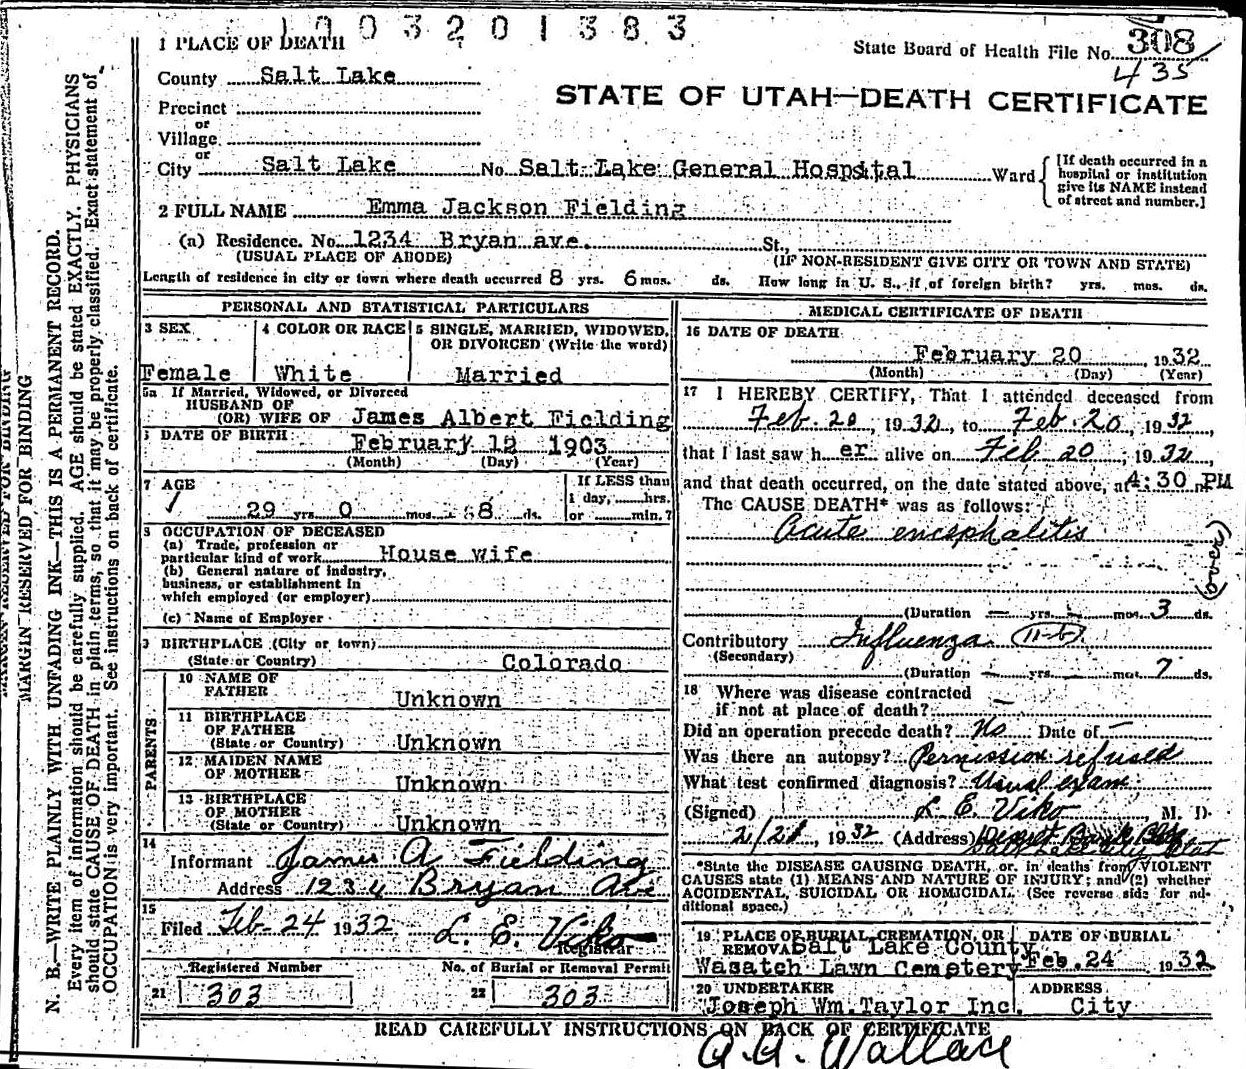 1003201383
State Board of Health File No. 308
435
STATE OF UTAH—DEATH CERTIFICATE
1 PLACE OF DEATH
County Salt Lake
Precinct
or
Village
or
City Salt Lake No. Salt Lake General Hospital Ward
[If death occurred in a
hospital or institution
give its NAME instead
of street and number.]
2 FULL NAME Emma Jackson Fielding
(a) Residence. No. 1234 Bryan ave. St.,
(USUAL PLACE OF ABODE) (IF NON-RESIDENT GIVE CITY OR TOWN AND STATE)
Length of residence in city or town where death occurred 8 yrs. 6 mos. ds. How long in U. S., if of foreign birth? yrs. mos. ds.
PERSONAL AND STATISTICAL PARTICULARS
3 SEX
Female
4 COLOR OR RACE
White
5 SINGLE, MARRIED, WIDOWED,
OR DIVORCED (Write the word)
Married
5a If Married, Widowed, or Divorced
HUSBAND OF
(OR) WIFE OF James Albert Fielding
6 DATE OF BIRTH
February 12 1903
(Month) (Day) (Year)
7 AGE
29 yrs. 0 mos. 8 ds.
If LESS than
1 day, hrs.
or min.?
8 OCCUPATION OF DECEASED
(a) Trade, profession or
particular kind of work House wife
(b) General nature of industry,
business, or establishment in
which employed (or employer)
(c) Name of Employer
9 BIRTHPLACE (City or town)
(State or Country) Colorado
PARENTS
10 NAME OF
FATHER Unknown
11 BIRTHPLACE
OF FATHER
(State or Country) Unknown
12 MAIDEN NAME
OF MOTHER Unknown
13 BIRTHPLACE
OF MOTHER
(State or Country) Unknown
14
Informant James A Fielding
Address 1234 Bryan Ave
15
Filed Feb 24 1932 L. E. Viko
Registrar
Registered Number
21 303
No. of Burial or Removal Permit
22 303
MEDICAL CERTIFICATE OF DEATH
16 DATE OF DEATH
February 20, 1932
(Month) (Day) (Year)
17 I HEREBY CERTIFY, That I attended deceased from
Feb. 20, 1932, to Feb. 20, 1932,
that I last saw her alive on Feb 20, 1932,
and that death occurred, on the date stated above, at 4:30 PM
The CAUSE DEATH* was as follows:
Acute encephalitis
(over)
(Duration — yrs. — mos. 3 ds.
Contributory Influenza 11-b
(Secondary)
(Duration yrs. mos. 7 ds.
18 Where was disease contracted
if not at place of death? —
Did an operation precede death? No Date of —
Was there an autopsy? Permission refused
What test confirmed diagnosis? Usual exam
(Signed) L. E. Viko, M. D.
2/21, 1932 (Address)
*State the DISEASE CAUSING DEATH, or, in deaths from VIOLENT
CAUSES state (1) MEANS AND NATURE OF INJURY; and (2) whether
ACCIDENTAL, SUICIDAL OR HOMICIDAL. (See reverse side for ad-
ditional space.)
19 PLACE OF BURIAL, CREMATION, OR
REMOVAL Salt Lake County
Wasatch Lawn Cemetery
DATE OF BURIAL
Feb. 24 1932
20 UNDERTAKER
Joseph Wm. Taylor Inc.
ADDRESS
City
READ CAREFULLY INSTRUCTIONS ON BACK OF CERTIFICATE
A. A. Wallace
MARGIN RESERVED FOR BINDING
N. B.—WRITE PLAINLY WITH UNFADING INK—THIS IS A PERMANENT RECORD.
Every item of information should be carefully supplied. AGE should be stated EXACTLY. PHYSICIANS
should state CAUSE OF DEATH in plain terms, so that it may be properly classified. Exact statement of
OCCUPATION is very important. See instructions on back of certificate.